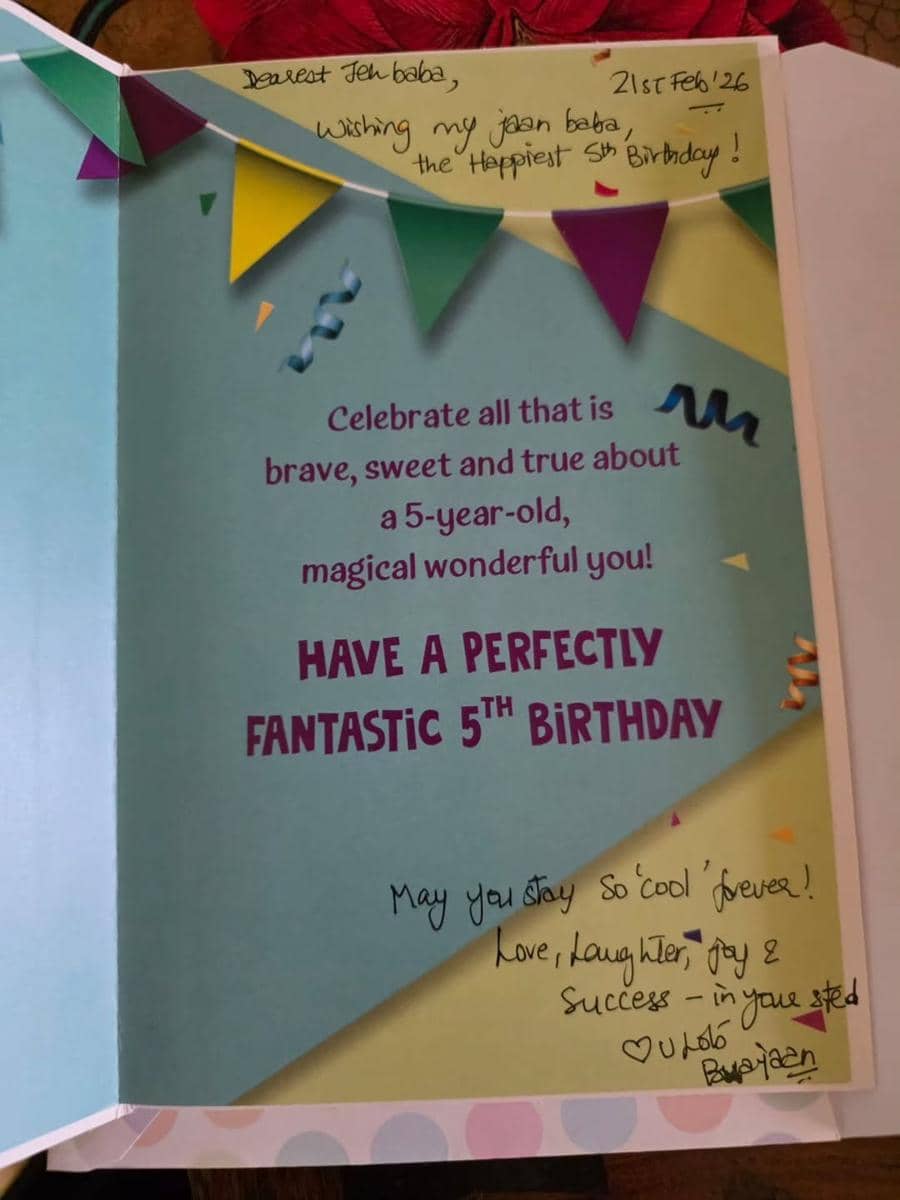 Dearest Jeh baba,
21ST Feb'26
Wishing my jaan baba,
the Happiest 5th Birthday!
Celebrate all that is
brave, sweet and true about
a 5-year-old,
magical wonderful you!
HAVE A PERFECTLY
FANTASTIC 5TH BIRTHDAY
May you stay so 'cool' forever!
Love, Laughter, joy &
Success – in your sted
♡ U
Buajaan